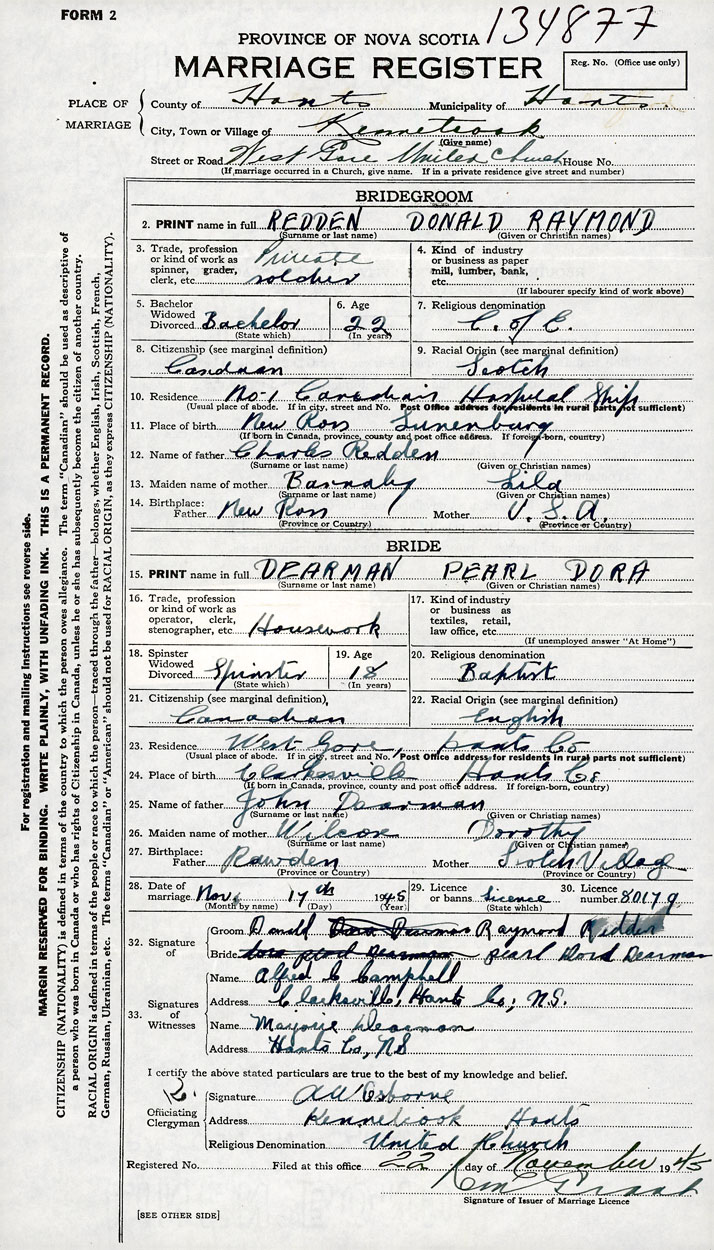 FORM 2
134877
PROVINCE OF NOVA SCOTIA
MARRIAGE REGISTER
Reg. No. (Office use only)
PLACE OF MARRIAGE
County of Hants Municipality of Hants
City, Town or Village of Kennetcook
(Give name)
Street or Road West Gore United Church House No.
(If marriage occurred in a Church, give name. If in a private residence give street and number)
BRIDEGROOM
2. PRINT name in full REDDEN DONALD RAYMOND
(Surname or last name) (Given or Christian names)
3. Trade, profession or kind of work as spinner, grader, clerk, etc. Private soldier
4. Kind of industry or business as paper mill, lumber, bank, etc.
(If labourer specify kind of work above)
5. Bachelor Widowed Divorced Bachelor
(State which)
6. Age 22
(In years)
7. Religious denomination C. of E.
8. Citizenship (see marginal definition) Candian
9. Racial Origin (see marginal definition) Scotch
10. Residence No-1 Canadian Hospital Ship
(Usual place of abode. If in city, street and No. Post Office address for residents in rural parts not sufficient)
11. Place of birth New Ross Lunenburg
(If born in Canada, province, county and post office address. If foreign-born, country)
12. Name of father Charles Redden
(Surname or last name) (Given or Christian names)
13. Maiden name of mother Barnaby Lila
(Surname or last name) (Given or Christian names)
14. Birthplace: Father New Ross Mother U. S. A.
(Province or Country) (Province or Country)
BRIDE
15. PRINT name in full DEARMAN PEARL DORA
(Surname or last name) (Given or Christian names)
16. Trade, profession or kind of work as operator, clerk, stenographer, etc. Housework
17. Kind of industry or business as textiles, retail, law office, etc.
(If unemployed answer "At Home")
18. Spinster Widowed Divorced Spinster
(State which)
19. Age 18
(In years)
20. Religious denomination Baptist
21. Citizenship (see marginal definition) Canadian
22. Racial Origin (see marginal definition) English
23. Residence West Gore, Hants Co
(Usual place of abode. If in city, street and No. Post Office address for residents in rural parts not sufficient)
24. Place of birth Clarksville Hants Co
(If born in Canada, province, county and post office address. If foreign-born, country)
25. Name of father John Dearman
(Surname or last name) (Given or Christian names)
26. Maiden name of mother Wilcox Dorothy
(Surname or last name) (Given or Christian names)
27. Birthplace: Father Rawden Mother Scotch Village
(Province or Country) (Province or Country)
28. Date of marriage Nov. 17th 1945
(Month by name) (Day) (Year)
29. Licence or banns Licence
(State which)
30. Licence number 80179
32. Signature of
Groom Donald Raymond Redden
Bride pearl Dord Dearman
33. Signatures of Witnesses
Name Alfred C Campbell
Address Clarksville, Hants Co; N.S.
Name Marjorie Dearman
Address Hants Co, NS
I certify the above stated particulars are true to the best of my knowledge and belief.
Officiating Clergyman
Signature AW Osborne
Address Kennetcook Hants
Religious Denomination United Church
Registered No. Filed at this office 22 day of November 1945
Signature of Issuer of Marriage Licence
[SEE OTHER SIDE]
For registration and mailing instructions see reverse side.
MARGIN RESERVED FOR BINDING. WRITE PLAINLY, WITH UNFADING INK. THIS IS A PERMANENT RECORD.
CITIZENSHIP (NATIONALITY) is defined in terms of the country to which the person owes allegiance. The term "Canadian" should be used as descriptive of
a person who was born in Canada or who has rights of Citizenship in Canada, unless he or she has subsequently become the citizen of another country.
RACIAL ORIGIN is defined in terms of the people or race to which the person—traced through the father—belongs, whether English, Irish, Scottish, French,
German, Russian, Ukrainian, etc. The terms "Canadian" or "American" should not be used for RACIAL ORIGIN, as they express CITIZENSHIP (NATIONALITY).